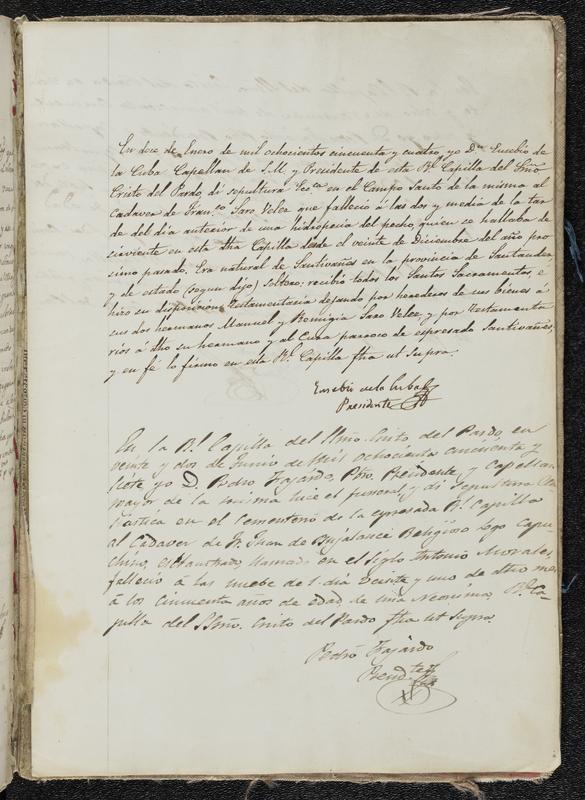 En doce de Enero de mil ochocientos cincuenta y cuatro, yo Dn Eusebio de
la Cuba Capellan de S.M. y Presidente de esta Rl Capilla del Smo
Cristo del Pardo dí sepultura Ecca en el Campo Santo de la misma al
Cadaver de Franco Saro Velez que falleció á las dos y media de la tar
de del dia anterior de una hidropesia del pecho, quien se hallaba de
sirviente en esta dha Capilla desde el veinte de Diciembre del año pro
simo pasado. Era natural de Santivañes en la provincia de Santander,
y de estado (segun dijo) soltero: recibió todos los Santos Sacramentos, é
hizo su disposicion testamentaria dejando por herederos de sus bienes á
sus dos hermanos Manuel y Remigia Saro Velez, y por testamenta
rios á dho su hermano y al Cura parroco de espresado Santivañes,
y en fé lo firmo en esta Rl Capilla fha ut Supra.
Eusebio de la Cuba
Presidente
En la Rl Capilla del SSmo Cristo del Pardo en
veinte y dos de Junio de mil ochocientos cincuenta y
siete yo D. Pedro Fajardo, Pbro. Presidente, y Capellan
mayor de la misma hice el funeral, y dí sepultura Ecle
siastica en el Cementerio de la espresada Rl Capilla
al Cadaver de Fr. Juan de Bujalance Religioso lego Capu
chino, esclaustrado, llamado en el siglo Antonio Morales,
falleció á las nueve del dia veinte y uno de dicho mes
á los cincuenta años de edad de una Rl Ca-
pilla del SSmo Cristo del Pardo fha ut supra
Pedro Fajardo
Presidte